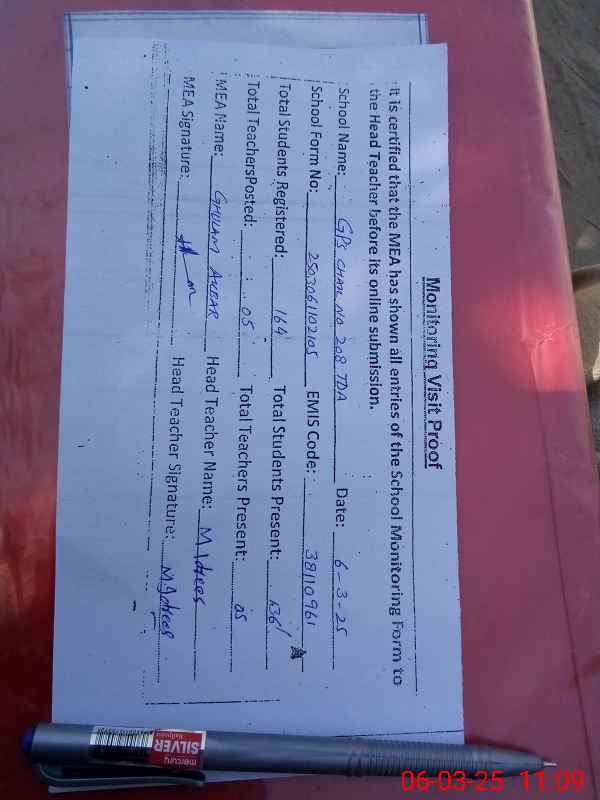 Monitoring Visit Proof
It is certified that the MEA has shown all entries of the School Monitoring Form to
the Head Teacher before its online submission.
School Name: GPS CHAK NO 208 TDA Date: 6-3-25
School Form No: 2503061102105 EMIS Code: 38110961
Total Students Registered: 164 Total Students Present: 136
Total TeachersPosted: 05 Total Teachers Present: 05
MEA Name: GHULAM AKBAR Head Teacher Name: M Idrees
MEA Signature: Head Teacher Signature: M Idrees
mercury
SILVER
Ballpoint
06-03-25 11:09